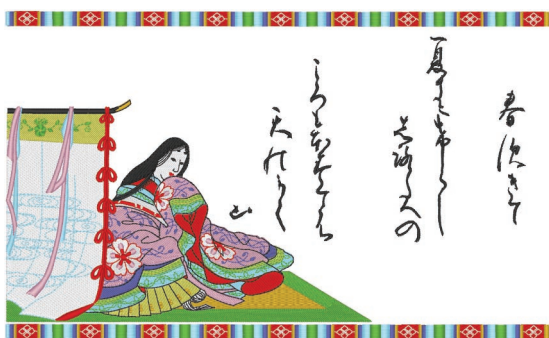 春須きて
夏き尓けらし
志ろたへの
ころもほすてふ
天のかく
山